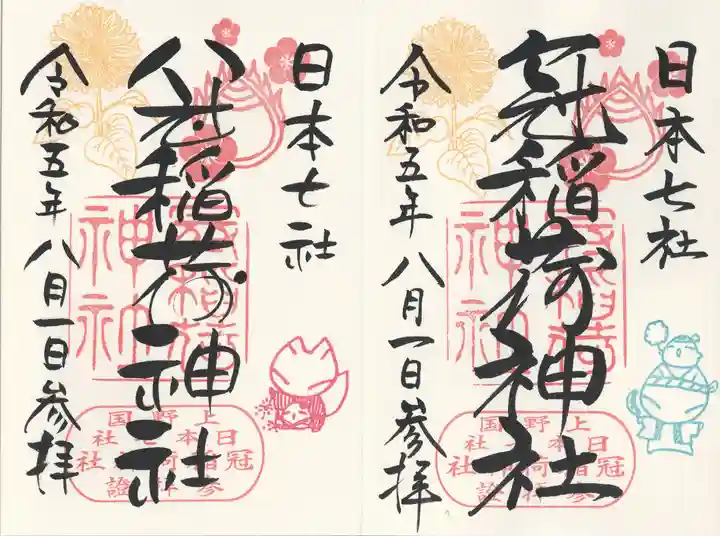 日本七社
冠稲荷神社
令和五年 八月一日参拝
上野国
日本七社
参拝證
日本七社
稲荷神社
令和五年 八月一日参拝
上野国
日本七社
参拝證